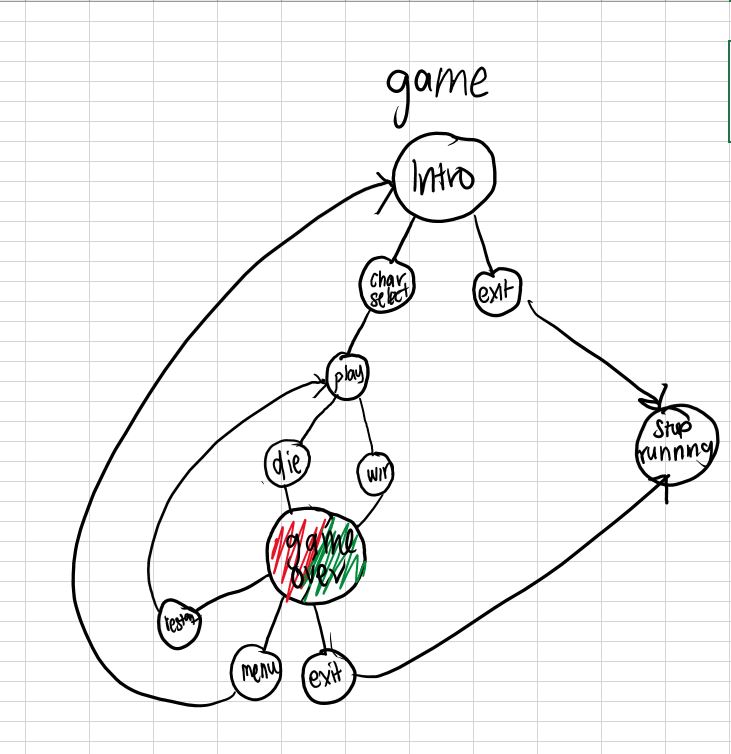 game
Intro
char
select
exit
play
die
win
stop
running
game
over
restart
menu
exit